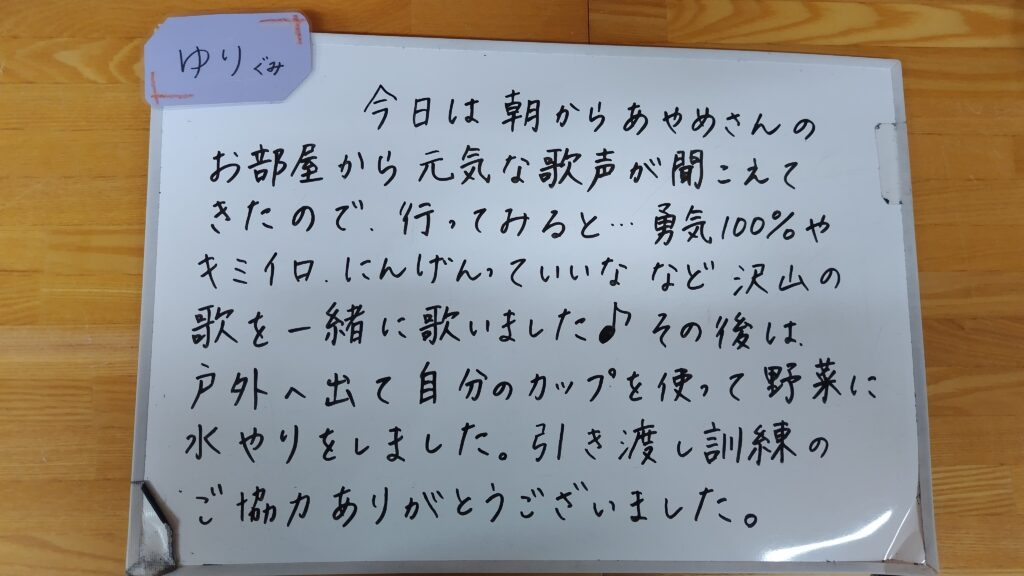 ゆりぐみ
今日は朝からあやめさんの
お部屋から元気な歌声が聞こえて
きたので、行ってみると…勇気100%や
キミイロ、にんげんっていいな など 沢山の
歌を一緒に歌いました♪その後は、
戸外へ出て自分のカップを使って野菜に
水やりをしました。引き渡し訓練の
ご協力ありがとうございました。